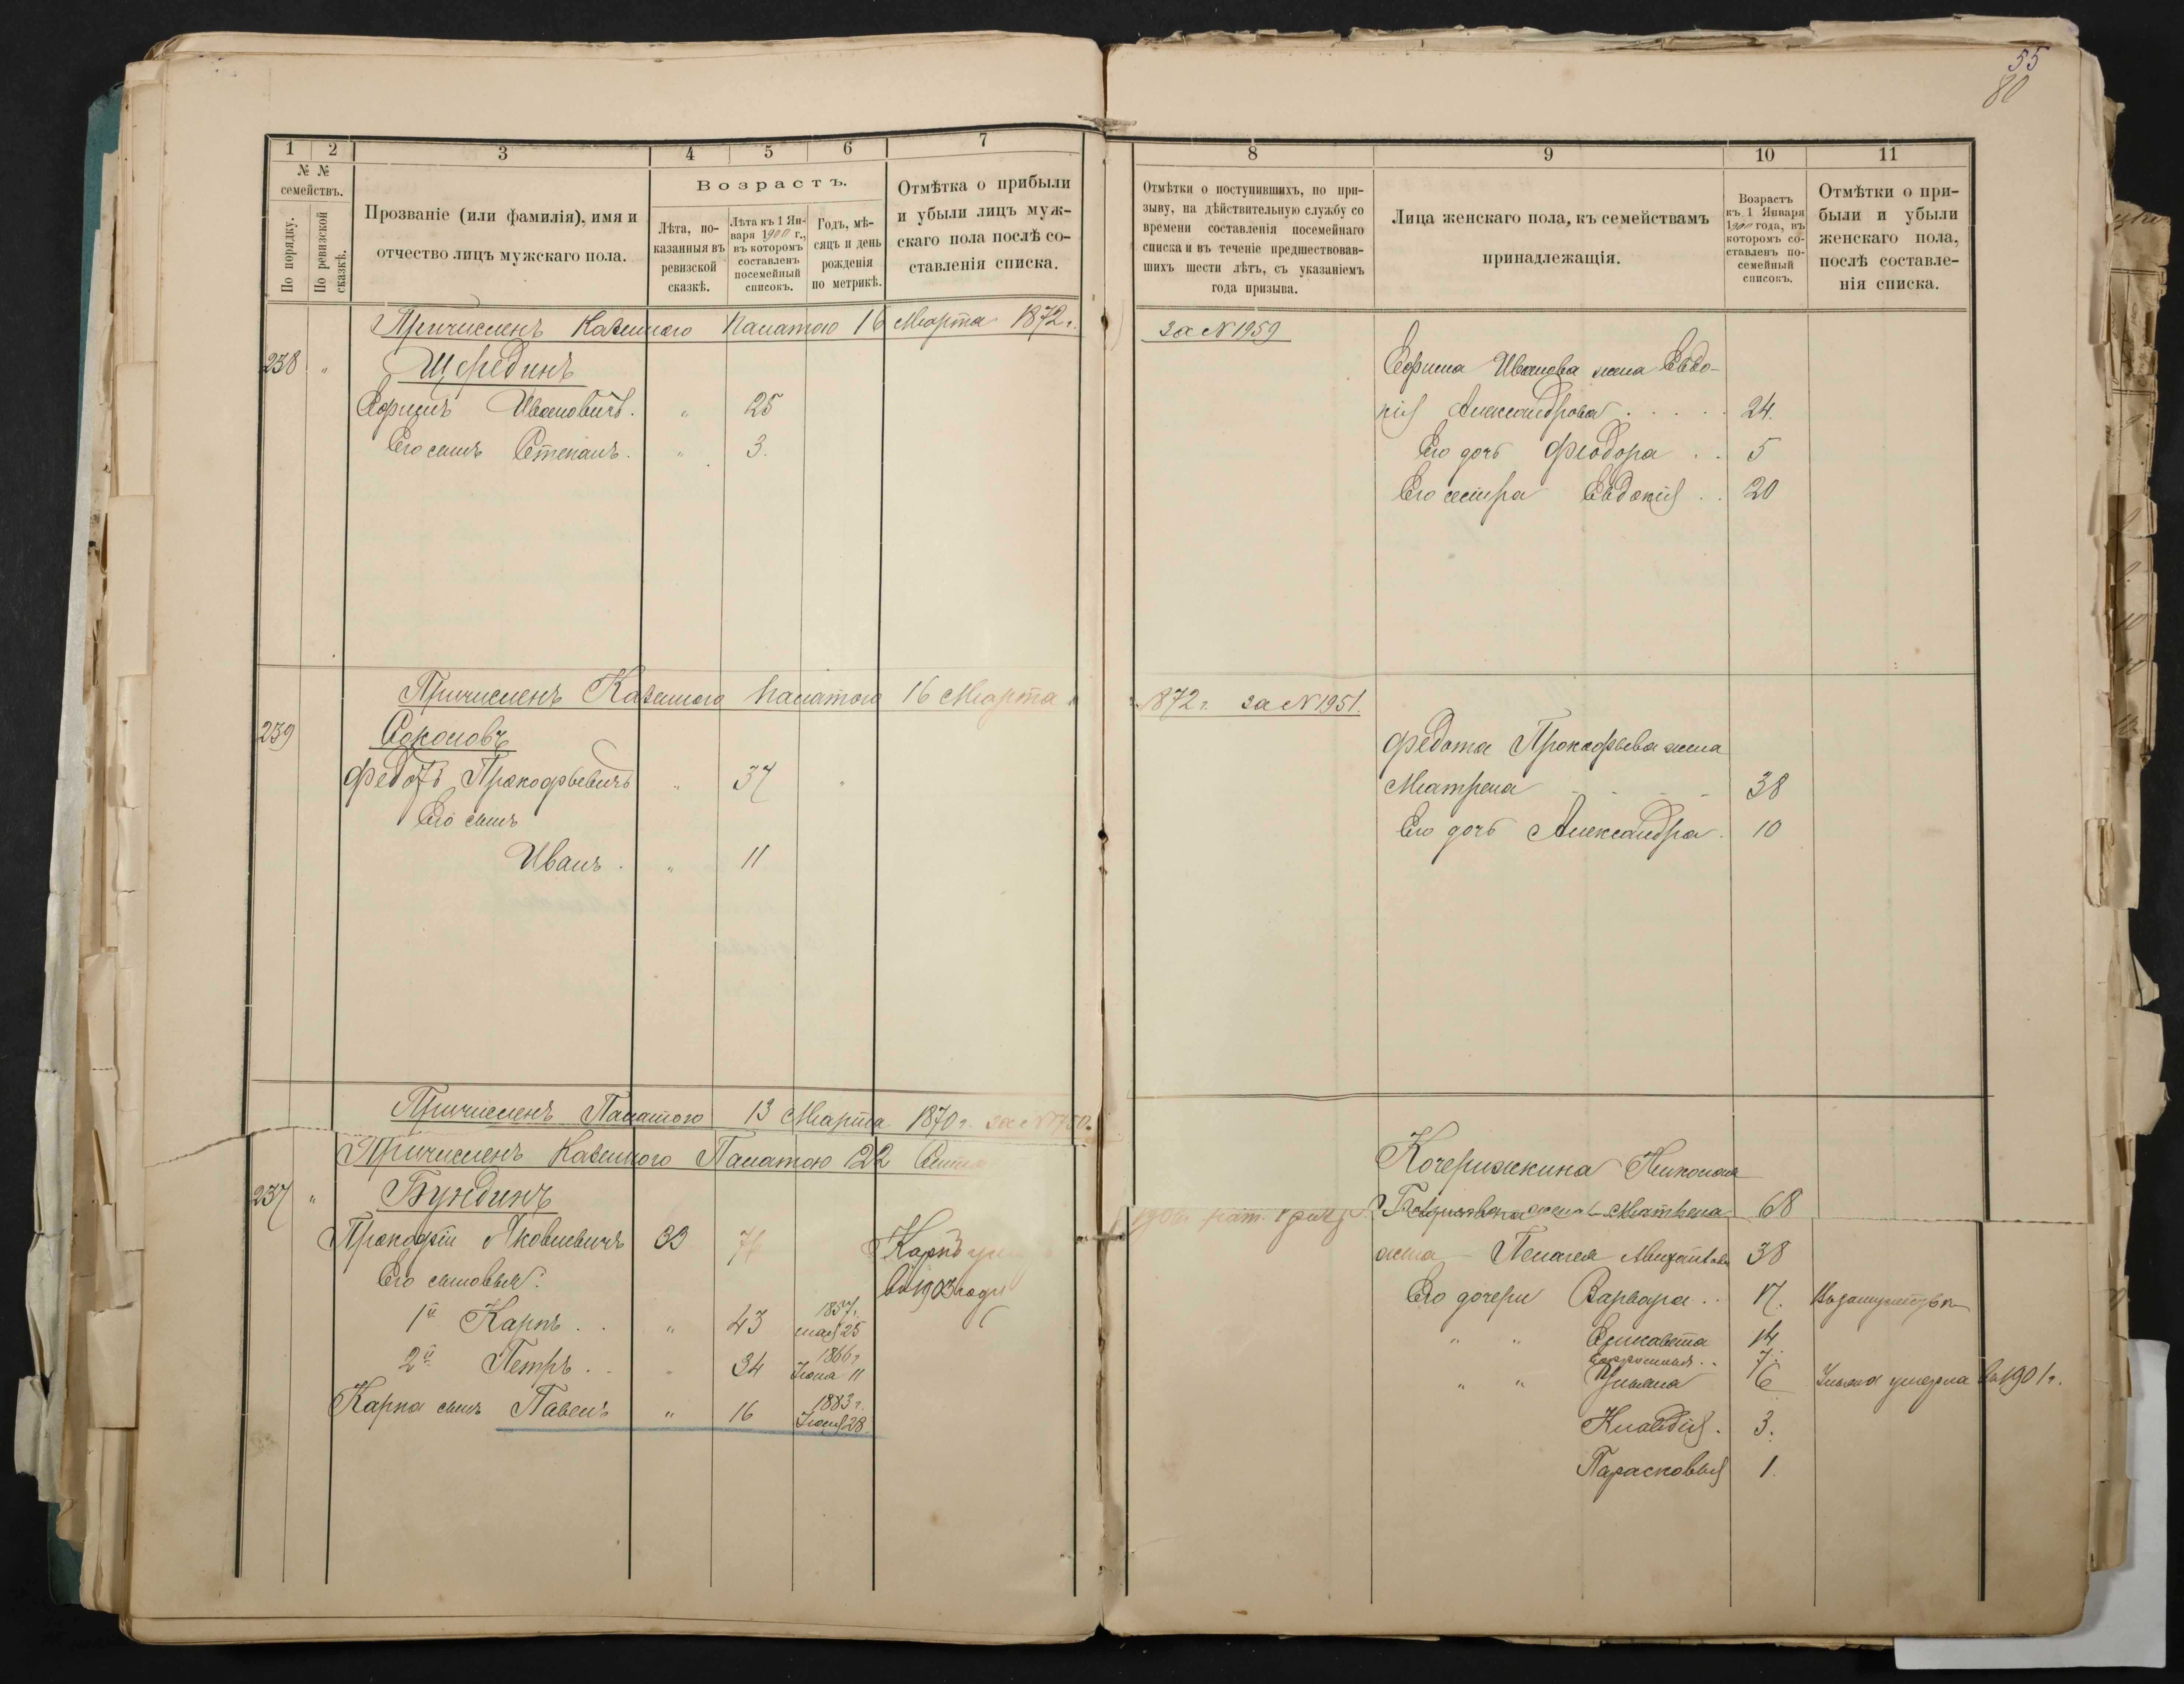 55
80
1
2
3
4
5
6
7
№ №
семействъ.
По порядку.
По ревизской
сказкѣ.
Прозваніе (или фамилія), имя и
отчество лицъ мужскаго пола.
Возрастъ.
Лѣта, по-
казанныя въ
ревизской
сказкѣ.
Лѣта къ 1 Ян-
варя 1900 г.,
въ которомъ
составленъ
посемейный
списокъ.
Годъ, мѣ-
сяцъ и день
рожденія
по метрикѣ.
Отмѣтка о прибыли
и убыли лицъ муж-
скаго пола послѣ со-
ставленія списка.
Причисленъ Казенною Палатою 16 Марта 1872 г.
238 "
Щрединъ
Ефимъ Ивановичъ. " 25
Его сынъ Степанъ. " 3.
Причисленъ Казенною Палатою 16 Марта
239
Соколовъ
Федотъ Прокофьевичъ " 37 "
Его сынъ
Иванъ . " 11
Причисленъ Палатою 13 Марта 1870 г. за №750.
Причисленъ Казенною Палатою 22
237 "
Бундинъ
Прокофій Яковлевичъ 33 76
Карпъ
въ 1903 году
Его сыновья:
1й Карпъ . . " 43 1857 г. мая 25
2й Петръ . . " 34 1866 г. Іюня 11
Карпа сынъ Павелъ " 16 1883 г. 28
8
9
10
11
Отмѣтки о поступившихъ, по при-
зыву, на дѣйствительную службу со
времени составленія посемейнаго
списка и въ теченіе предшествовав-
шихъ шести лѣтъ, съ указаніемъ
года призыва.
Лица женскаго пола, къ семействамъ
принадлежащія.
Возрастъ
къ 1 Января
1900 года, въ
которомъ со-
ставленъ по-
семейный
списокъ.
Отмѣтки о при-
были и убыли
женскаго пола,
послѣ составле-
нія списка.
за №1959
Ефима Иванова жена Евдо-
кія Александрова . . . . . 24.
Его дочь Феодора . . 5
Его сестра Евдокія . . 20
1872 г. за №1951.
Федота Прокофьева жена
Матрена . . . . 38
Его дочь Александра . 10
Кочерижкина Николая
жена Матрена 68
жена - Пелагея 38
Его дочери Варвара . . 17.
" " Елисавета 14
7.
" " Ульяна 6 Ульяна умерла въ 1901 г.
Клавдія . 3.
Парасковья 1.